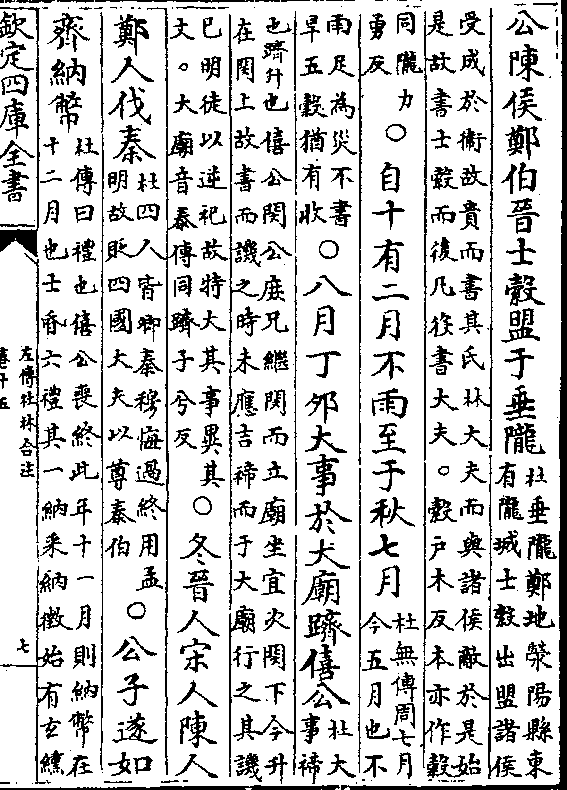 公陳侯鄭伯晉士縠盟于垂隴杜垂隴鄭地滎陽縣東有隴城士縠出盟諸侯
受成於衞故貴而書其氏林大夫而與諸侯敵於是始是故書士縠而復凡後書大夫。縠戶木反本亦作穀
同隴力勇反○自十有二月不雨至于秋七月杜無傳周七月今五月也不
雨足為災不書旱五穀猶有收○八月丁卯大事於大廟躋僖公杜大事禘
也躋升也僖公閔公庶兄繼閔而立廟坐宜次閔下今升在閔上故書而譏之時未應吉禘而于大廟行之其譏
已明徒以逆祀故特大其事異其文。大廟音泰傳同躋子兮反○冬晉人宋人陳人
鄭人伐秦杜四人皆卿秦穆悔過終用孟明故貶四國大夫以尊秦伯○公子遂如
齊納幣杜傳曰禮也僖公喪終此年十一月則納幣在十二月也士昏六禮其一納采納徵始有玄纁
欽定四庫全書
左傳杜林合注
卷十五
七